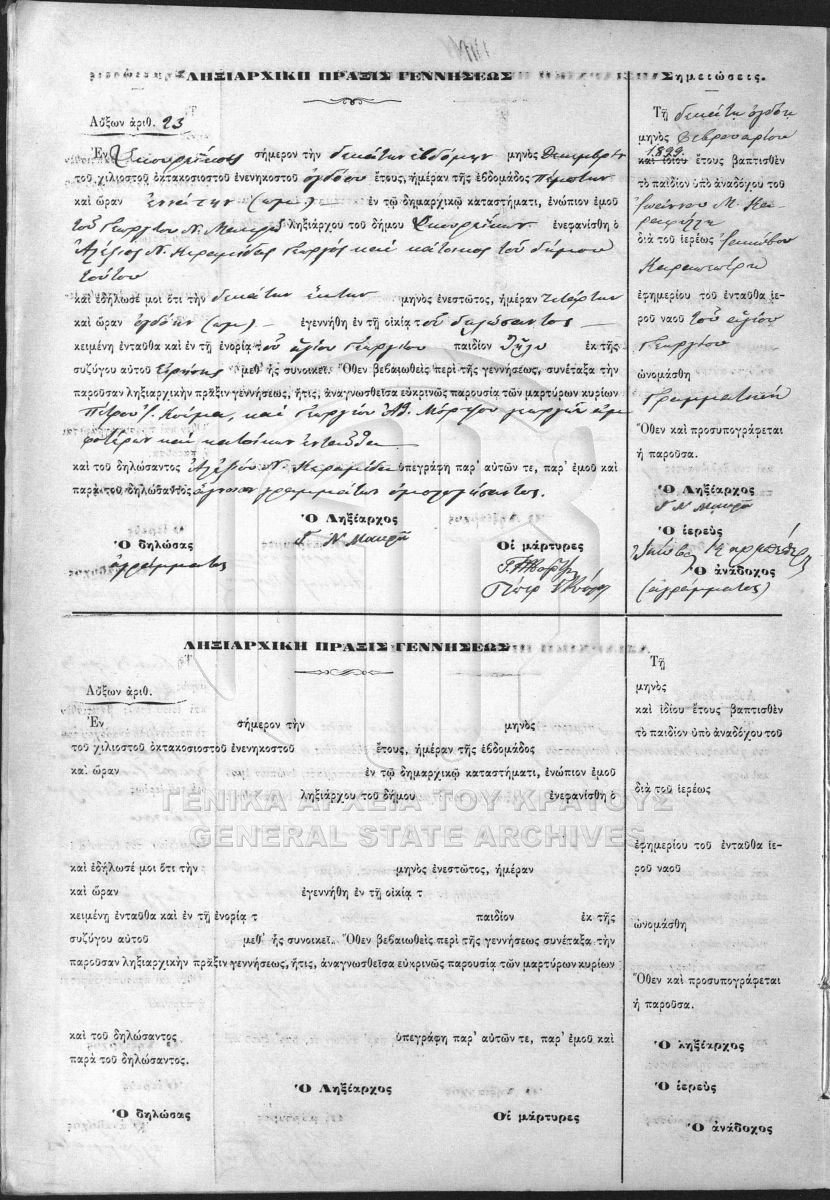 ΛΗΞΙΑΡΧΙΚΗ ΠΡΑΞΙΣ ΓΕΝΝΗΣΕΩΣ
Αὔξων ἀριθ. 23
Ἐν σήμερον τὴν δεκάτην ἑβδόμην μηνὸς Δεκεμβρίου
τοῦ χιλιοστοῦ ὀκτακοσιοστοῦ ἐνενηκοστοῦ ὀγδόου ἔτους, ἡμέραν τῆς ἑβδομάδος Πέμπτην
καὶ ὥραν ἐννάτην (π.μ.) ἐν τῷ δημαρχικῷ καταστήματι, ἐνώπιον ἐμοῦ
τοῦ Γεωργίου Ν. Μακρῆ ληξιάρχου τοῦ δήμου ἐνεφανίσθη ὁ
Ἀλέξιος Ν. Κεραμίδας γεωργὸς καὶ κάτοικος τοῦ δήμου
τούτου
καὶ ἐδήλωσέ μοι ὅτι τὴν δεκάτην ἕκτην μηνὸς ἐνεστῶτος, ἡμέραν τετάρτην
καὶ ὥραν ὀγδόην (π.μ.) ἐγεννήθη ἐν τῇ οἰκίᾳ τοῦ δηλώσαντος
κειμένῃ ἐνταῦθα καὶ ἐν τῇ ἐνορίᾳ τοῦ ἁγίου Γεωργίου παιδίον θῆλυ ἐκ τῆς
συζύγου αὐτοῦ Εἰρήνης μεθ' ἧς συνοικεῖ. Ὅθεν βεβαιωθεὶς περὶ τῆς γεννήσεως, συνέταξα τὴν
παροῦσαν ληξιαρχικὴν πρᾶξιν γεννήσεως, ἥτις, ἀναγνωσθεῖσα εὐκρινῶς παρουσίᾳ τῶν μαρτύρων κυρίων
Πέτρου Γ. καὶ Γεωργίου Ἀθ. γεωργῶν ἀμ
φοτέρων καὶ κατοίκων ἐνταῦθα
καὶ τοῦ δηλώσαντος Ἀλεξίου Ν. Κεραμίδα ὑπεγράφη παρ' αὐτῶν τε, παρ' ἐμοῦ καὶ
παρὰ τοῦ δηλώσαντος ἄγνοιαν γραμμάτων ὁμολογήσαντος.
Ὁ Ληξίαρχος
Γ Ν Μακρῆ
Ὁ δηλώσας
ἀγράμματος
Οἱ μάρτυρες
Σημειώσεις.
Τῇ δεκάτῃ ὀγδόῃ
μηνὸς Φεβρουαρίου
1899
καὶ ἰδίου ἔτους βαπτισθὲν
τὸ παιδίον ὑπὸ ἀναδόχου τοῦ
Ἰωάννου Μ.
διὰ τοῦ ἱερέως Ἰακώβου
ἐφημερίου τοῦ ἐνταῦθα ἱε-
ροῦ ναοῦ τοῦ ἁγίου
Γεωργίου
ὠνομάσθη
Γραμματικὴ
Ὅθεν καὶ προσυπογράφεται
ἡ παροῦσα.
Ὁ Ληξίαρχος
Γ Ν Μακρῆ
Ὁ ἱερεὺς
Ὁ ἀνάδοχος
(ἀγράμματος)
ΛΗΞΙΑΡΧΙΚΗ ΠΡΑΞΙΣ ΓΕΝΝΗΣΕΩΣ
Αὔξων ἀριθ.
Ἐν σήμερον τὴν μηνὸς
τοῦ χιλιοστοῦ ὀκτακοσιοστοῦ ἐνενηκοστοῦ ἔτους, ἡμέραν τῆς ἑβδομάδος
καὶ ὥραν ἐν τῷ δημαρχικῷ καταστήματι, ἐνώπιον ἐμοῦ
ληξιάρχου τοῦ δήμου ἐνεφανίσθη ὁ
ΓΕΝΙΚΑ ΑΡΧΕΙΑ ΤΟΥ ΚΡΑΤΟΥΣ
GENERAL STATE ARCHIVES
καὶ ἐδήλωσέ μοι ὅτι τὴν μηνὸς ἐνεστῶτος, ἡμέραν
καὶ ὥραν ἐγεννήθη ἐν τῇ οἰκίᾳ τ
κειμένῃ ἐνταῦθα καὶ ἐν τῇ ἐνορίᾳ τ παιδίον ἐκ τῆς
συζύγου αὐτοῦ μεθ' ἧς συνοικεῖ. Ὅθεν βεβαιωθεὶς περὶ τῆς γεννήσεως συνέταξα τὴν
παροῦσαν ληξιαρχικὴν πρᾶξιν γεννήσεως, ἥτις, ἀναγνωσθεῖσα εὐκρινῶς παρουσίᾳ τῶν μαρτύρων κυρίων
καὶ τοῦ δηλώσαντος ὑπεγράφη παρ' αὐτῶν τε, παρ' ἐμοῦ καὶ
παρὰ τοῦ δηλώσαντος.
Ὁ Ληξίαρχος
Ὁ δηλώσας
Οἱ μάρτυρες
Τῇ
μηνὸς
καὶ ἰδίου ἔτους βαπτισθὲν
τὸ παιδίον ὑπὸ ἀναδόχου τοῦ
διὰ τοῦ ἱερέως
ἐφημερίου τοῦ ἐνταῦθα ἱε-
ροῦ ναοῦ
ὠνομάσθη
Ὅθεν καὶ προσυπογράφεται
ἡ παροῦσα.
Ὁ ληξίαρχος
Ὁ ἱερεὺς
Ὁ ἀνάδοχος